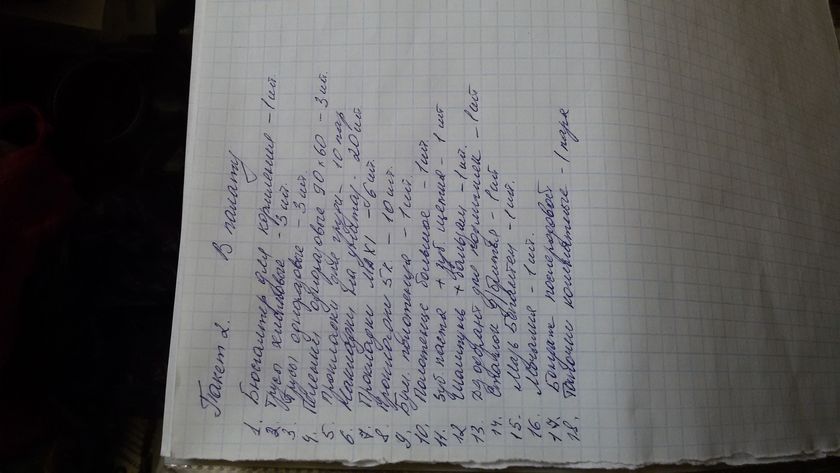 Пакет 2. В палату
1. Бюстгалтер для кормления - 1 шт.
2. Трусы хлопковые - 3 шт.
3. Трусы одноразовые - 3 шт.
4. Пеленки одноразовые 90×60 - 3 шт.
5. Прокладки для груди - 10 пар
6 Накладки для унитаз. 20 шт.
7 Прокладки MAXI - 6 шт.
8 Прокладки 5к - 10 шт.
9. Бум. полотенца - 1 шт.
10. Полотенце большое - 1 шт
11. Зуб паста + зуб щетка - 1 шт
12 Шампунь + бальзам - 1 шт.
13. део - 1 шт
14. Станок - 1 шт
15. Мазь Бепантен - 1 шт.
16. Мочалка - 1 шт.
17. Бандаж послеродовой
18. Тапочки - 1 пара